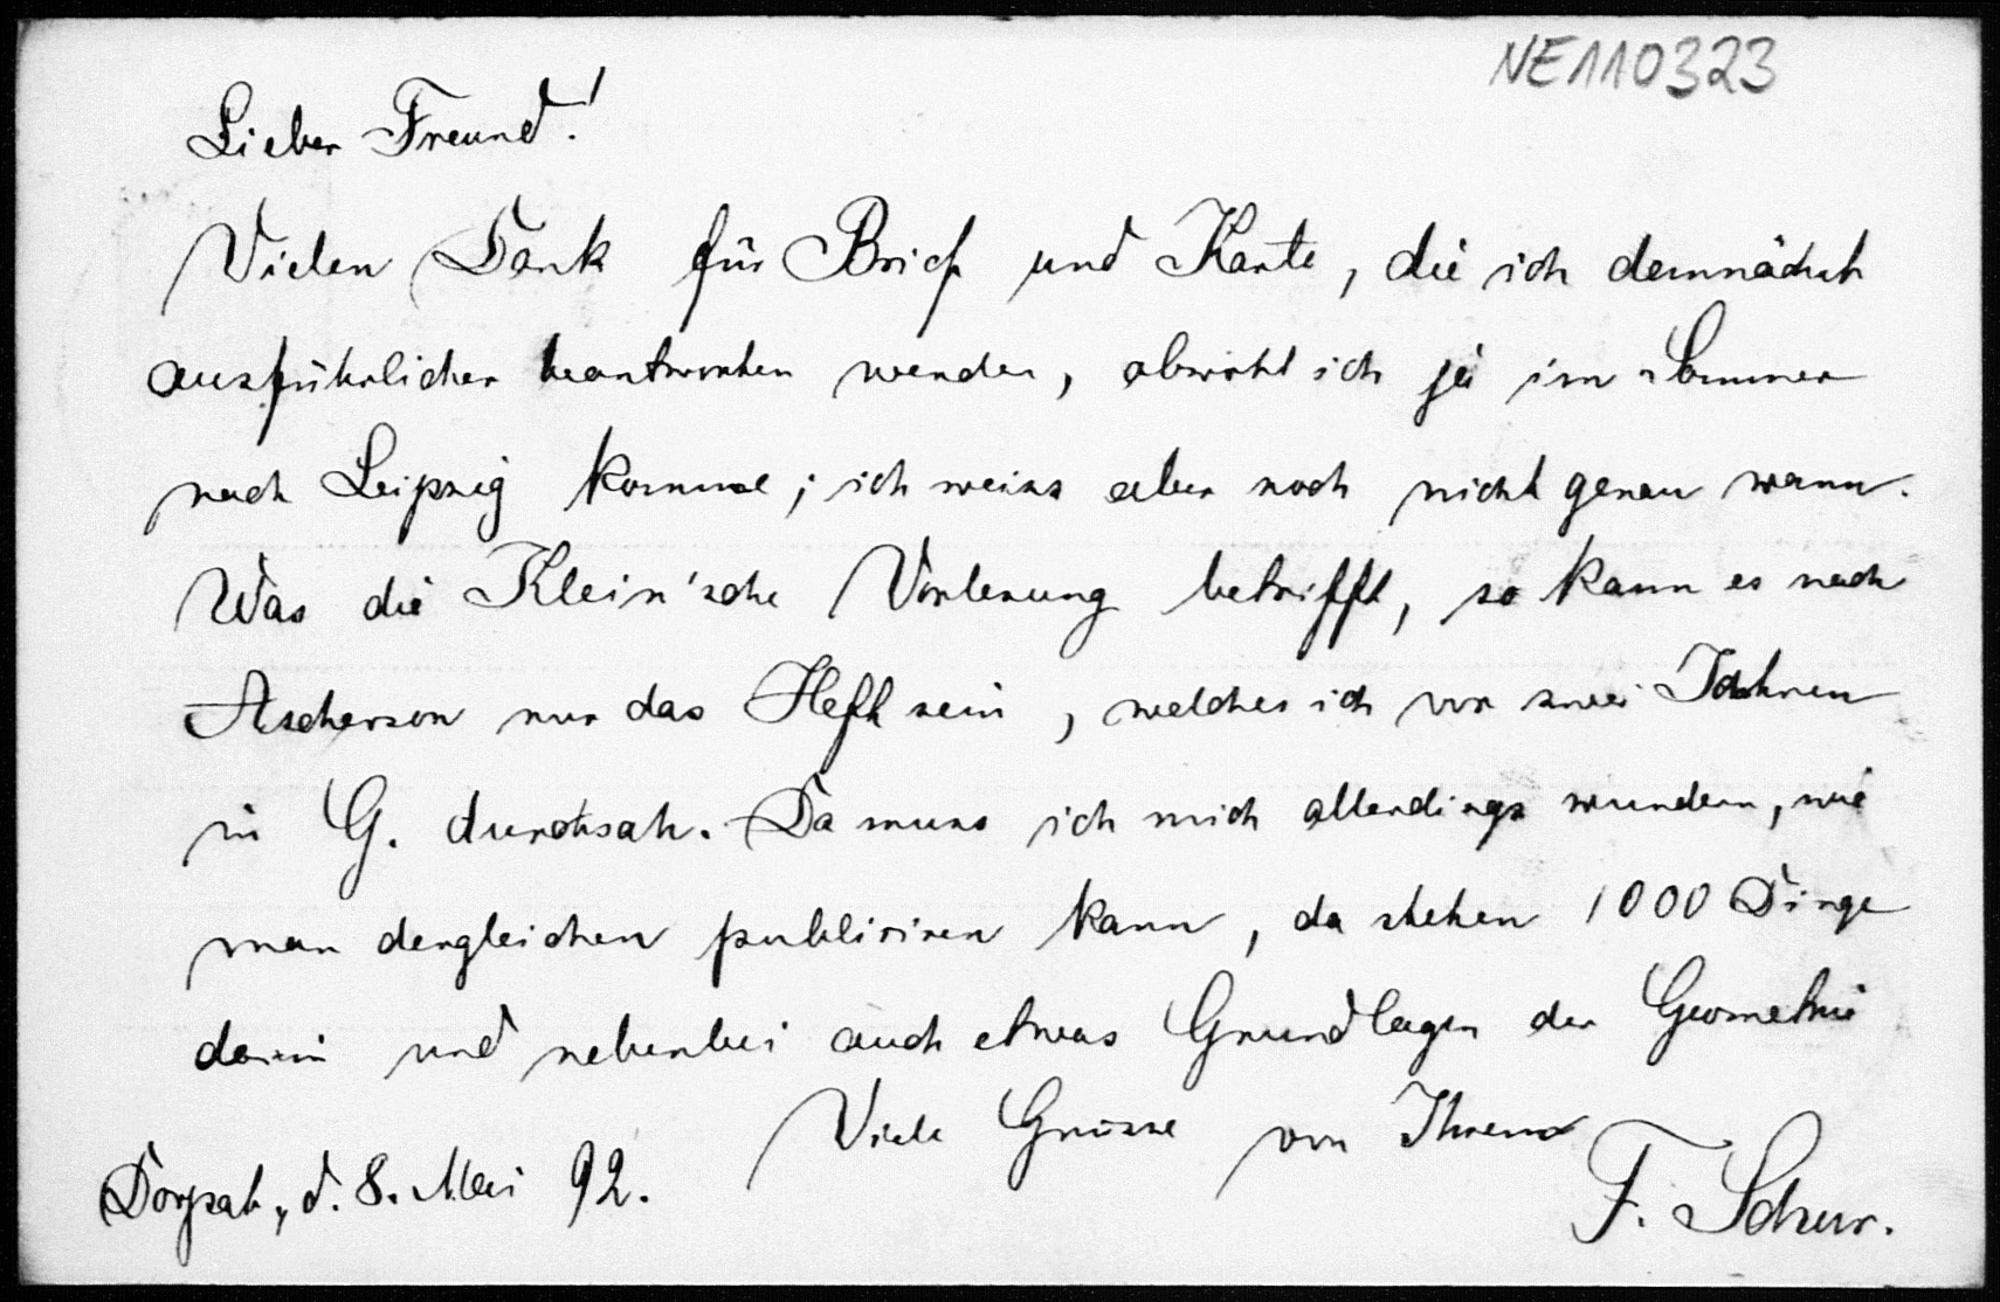 NE110323
Lieber Freund!
Vielen Dank für Brief und Karte, die ich demnächst
ausführlicher beantworten werde, obwohl ich ja im Sommer
nach Leipzig komme; ich weiss aber noch nicht genau wann.
Was die Klein'sche Vorlesung betrifft, so kann es nach
Ascherson nur das Heft sein, welches ich vor zwei Jahren
in G. durchsah. Da muss ich mich allerdings wundern, wie
man dergleichen publiciren kann, da stehen 1000 Dinge
darin und nebenbei auch etwas Grundlagen der Geometrie
Viele Grüsse von Ihrem
Dorpat, d. 8. Mai 92.
F. Schur.